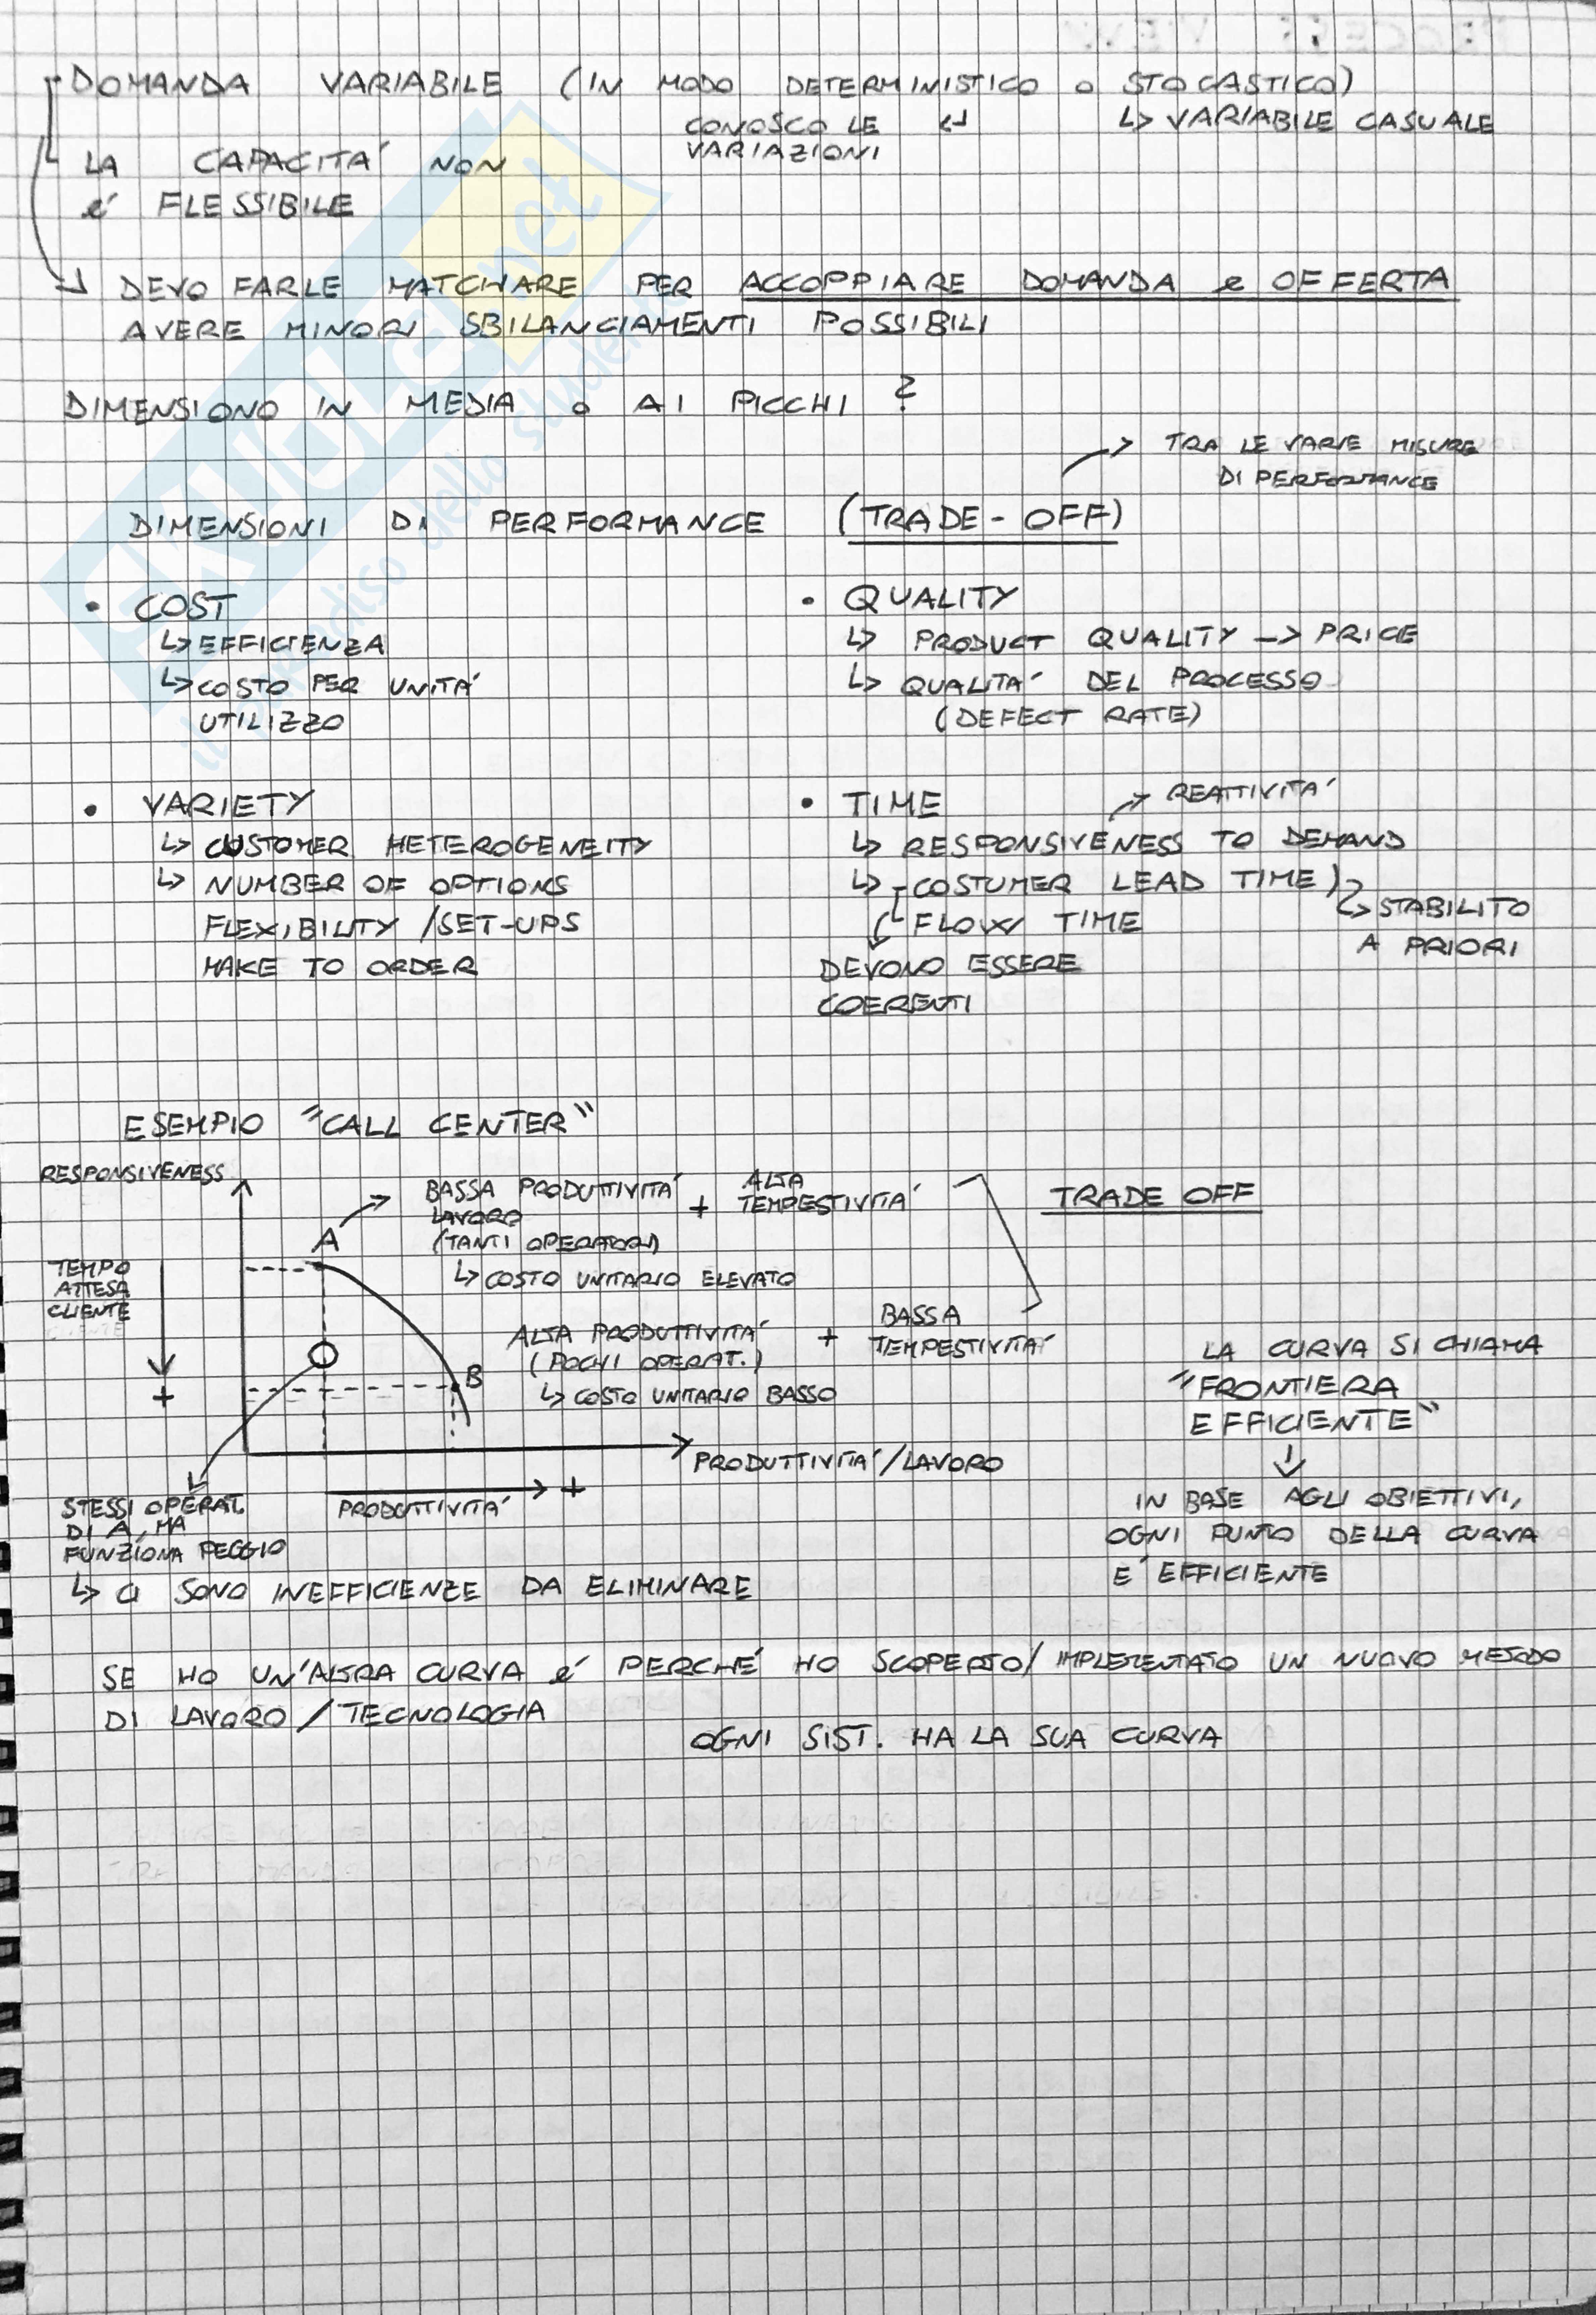 DOMANDA VARIABILE (IN MODO DETERMINISTICO o STOCASTICO)
CONOSCO LE VARIAZIONI
↳ VARIABILE CASUALE
LA CAPACITA' NON
é FLESSIBILE
DEVO FARLE MATCHARE PER ACCOPPIARE DOMANDA e OFFERTA
AVERE MINORI SBILANCIAMENTI POSSIBILI
DIMENSIONO IN MEDIA o AI PICCHI ?
TRA LE VARIE MISURE
DI PERFORMANCE
DIMENSIONI DI PERFORMANCE (TRADE-OFF)
• COST
↳ EFFICIENZA
↳ COSTO PER UNITA'
UTILIZZO
• QUALITY
↳ PRODUCT QUALITY -> PRICE
↳ QUALITA' DEL PROCESSO
(DEFECT RATE)
• VARIETY
↳ CUSTOMER HETEROGENEITY
↳ NUMBER OF OPTIONS
FLEXIBILITY /SET-UPS
MAKE TO ORDER
• TIME
REATTIVITA'
↳ RESPONSIVENESS TO DEMAND
↳ COSTUMER LEAD TIME
FLOW TIME
STABILITO
A PRIORI
DEVONO ESSERE
COERENTI
ESEMPIO "CALL CENTER"
RESPONSIVENESS
A
BASSA PRODUTTIVITA'
LAVORO
(TANTI OPERATORI)
↳ COSTO UNITARIO ELEVATO
+ ALTA
TEMPESTIVITA'
TRADE OFF
TEMPO
ATTESA
CLIENTE
+
B
ALTA PRODUTTIVITA'
(POCHI OPERAT.)
↳ COSTO UNITARIO BASSO
+ BASSA
TEMPESTIVITA'
PRODUTTIVITA'/LAVORO
PRODUTTIVITA' +
LA CURVA SI CHIAMA
"FRONTIERA
EFFICIENTE"
IN BASE AGLI OBIETTIVI,
OGNI PUNTO DELLA CURVA
E' EFFICIENTE
STESSI OPERAT.
DI A, MA
FUNZIONA PEGGIO
↳ CI SONO INEFFICIENZE DA ELIMINARE
SE HO UN'ALTRA CURVA é PERCHÉ HO SCOPERTO/IMPLEMENTATO UN NUOVO METODO
DI LAVORO / TECNOLOGIA
OGNI SIST. HA LA SUA CURVA